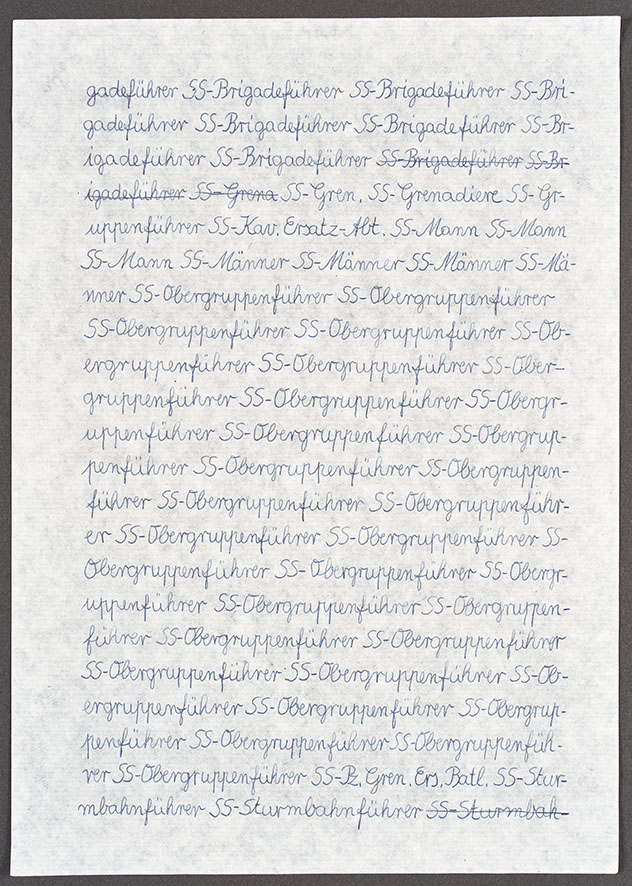 gadeführer SS-Brigadeführer SS-Brigadeführer SS-Bri-
gadeführer SS-Brigadeführer SS-Brigadeführer SS-Br-
igadeführer SS-Brigadeführer SS-Brigadeführer SS-Br-
igadeführer SS-Grena SS-Gren. SS-Grenadiere SS-Gr-
uppenführer SS-Kav. Ersatz-Abt. SS-Mann SS-Mann
SS-Mann SS-Männer SS-Männer SS-Männer SS-Mä-
nner SS-Obergruppenführer SS-Obergruppenführer
SS-Obergruppenführer SS-Obergruppenführer SS-Ob-
ergruppenführer SS-Obergruppenführer SS-Ober-
gruppenführer SS-Obergruppenführer SS-Obergr-
uppenführer SS-Obergruppenführer SS-Obergrup-
penführer SS-Obergruppenführer SS-Obergruppen-
führer SS-Obergruppenführer SS-Obergruppenführ-
er SS-Obergruppenführer SS-Obergruppenführer SS-
Obergruppenführer SS-Obergruppenführer SS-Obergr-
uppenführer SS-Obergruppenführer SS-Obergruppen-
führer SS-Obergruppenführer SS-Obergruppenführer
SS-Obergruppenführer SS-Obergruppenführer SS-Ob-
ergruppenführer SS-Obergruppenführer SS-Obergrup-
penführer SS-Obergruppenführer SS-Obergruppenfüh-
rer SS-Obergruppenführer SS-Pz. Gren. Ers. Batl. SS-Stur-
mbahnführer SS-Sturmbahnführer SS-Sturmbah-